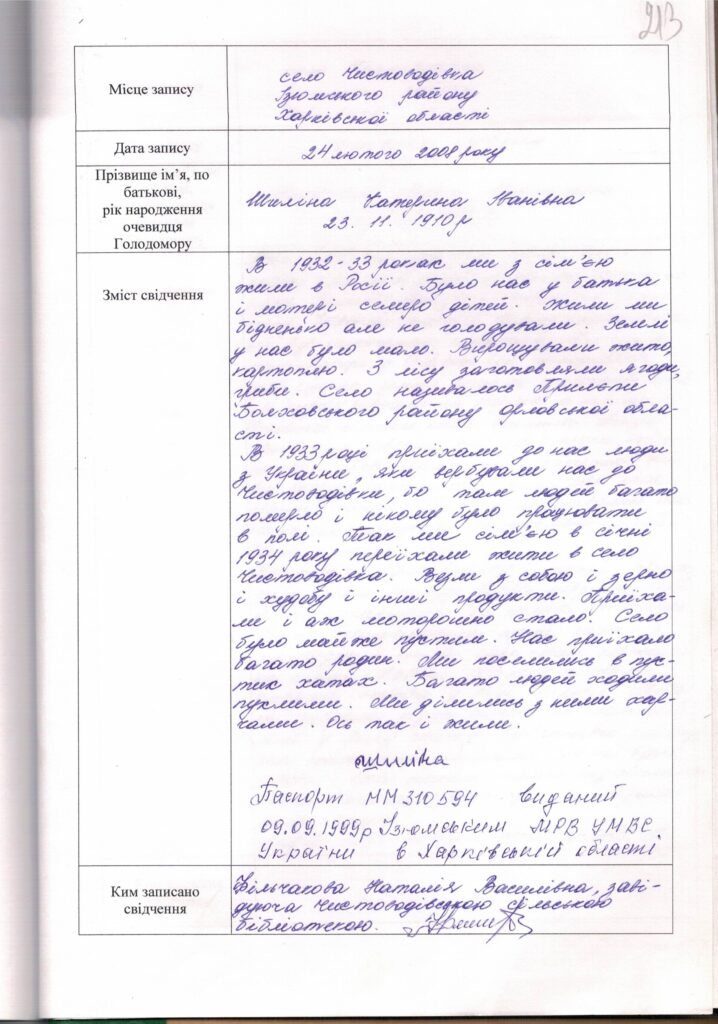 213
Місце запису
село Чистоводівка
Ізюмського району
Харківської області
Дата запису
24 лютого 2008 року
Прізвище ім’я, по
батькові,
рік народження
очевидця
Голодомору
Шиліна Катерина Іванівна
23. 11. 1910 р
Зміст свідчення
В 1932-33 роках ми з сім’єю
жили в Росії. Було нас у батька
і матері семеро дітей. Жили ми
бідненько але не голодували. Землі
у нас було мало. Вирощували жито,
картоплю. З лісу заготовляли ягоди,
гриби. Село називалось
Болховського району орловської обла-
сті.
В 1933 році приїхали до нас люди
з України, яки вербували нас до
Чистоводівки, бо там людей багато
померло і нікому було працювати
в полі. Так ми сім’єю в січні
1934 року переїхали жити в село
Чистоводівка. Везли з собою і зерно
і худобу і інші продукти. Приїха-
ли і аж моторошно стало. Село
було майже пустим. Нас приїхало
багато родин. Ми поселились в пус-
тих хатах. Багато людей ходили
пухлими. Ми ділились з ними хар-
чами. Ось так і жили.
Шиліна
Паспорт ММ 310594 виданий
09.09.1999р Ізюмським МРВ УМВС
України в Харківській області.
Ким записано
свідчення
Вільчакова Наталія Василівна, заві-
дуюча Чистоводівською сільською
бібліотекою.